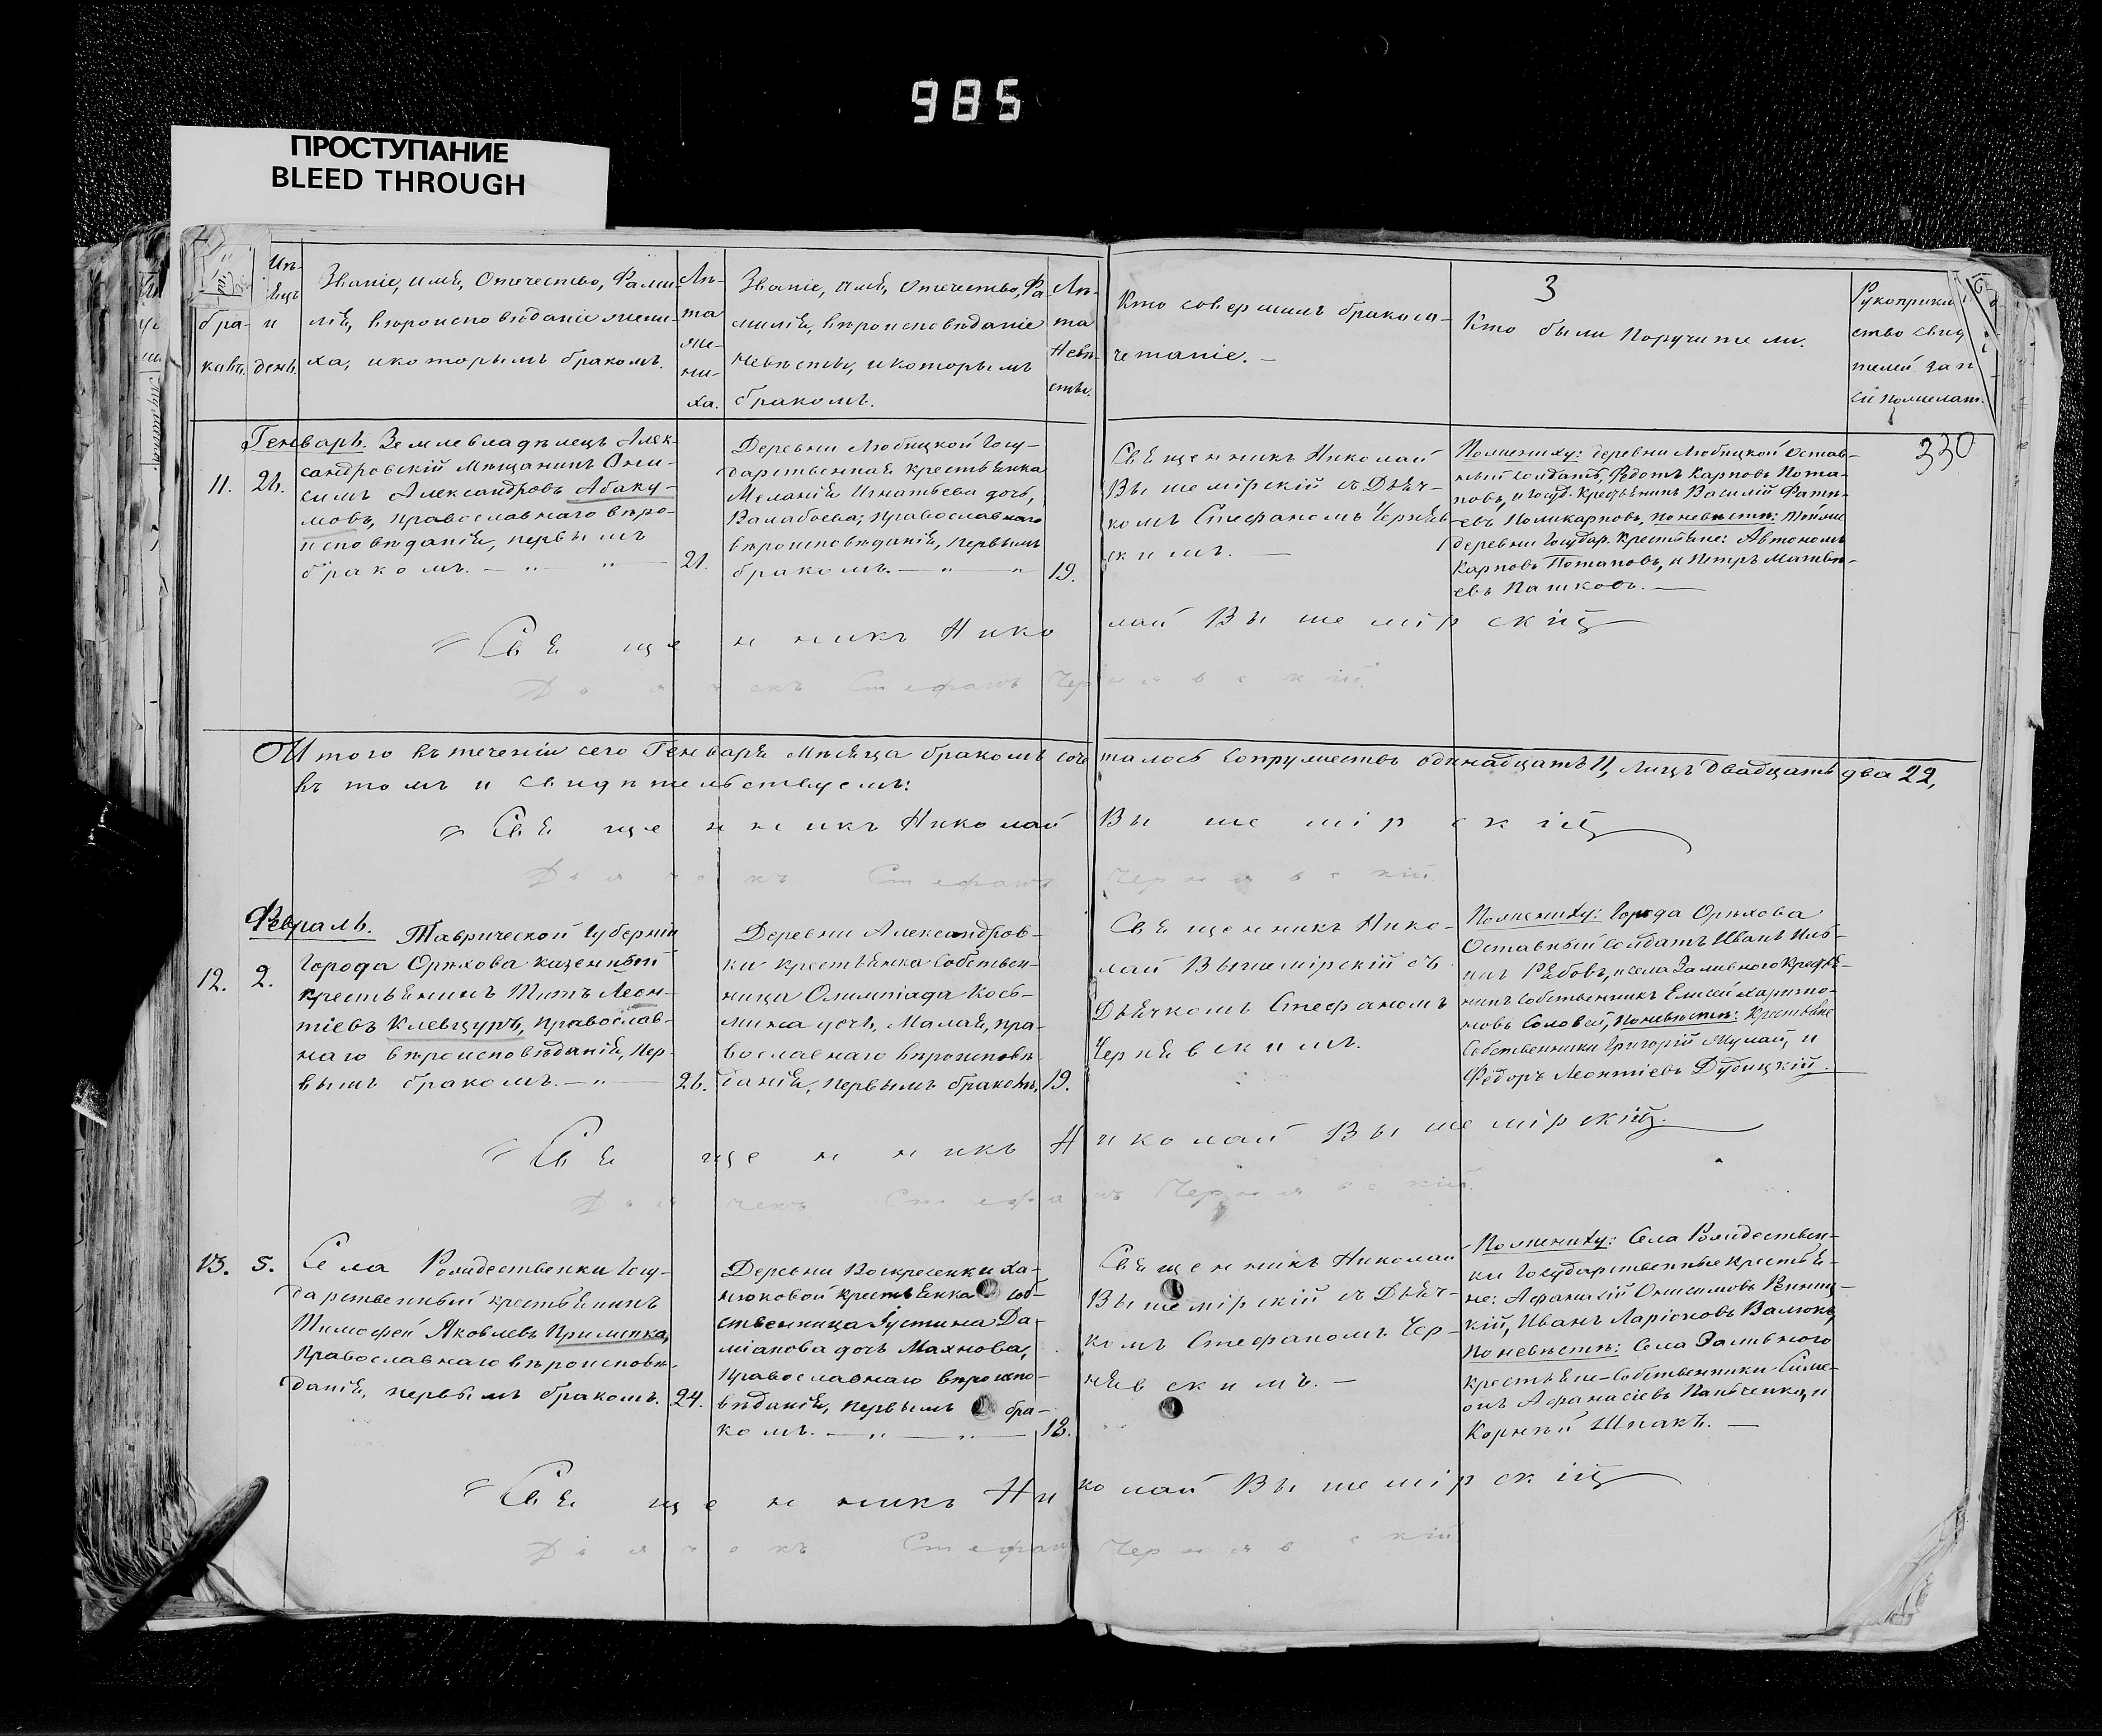 985
ПРОСТУПАНИЕ
BLEED THROUGH
бра-
кавъ.
и
день.
Званіе, имя, Отчество, Фами-
лія, вѣроисповѣданіе жени-
ха, и которымъ бракомъ.
Лѣ-
та
же-
ни-
ха.
Званіе, имя, Отчество, Фа-
милія, вѣроисповѣданіе
невѣсты, и которымъ
бракомъ.
Лѣ-
та
Невѣ-
сты.
Кто совершалъ бракосо-
четаніе. —
3
Кто были Поручители.
Рукоприкл
ство свид
телей зап
си по желан.
330
Генварь.
11.
26.
Землевладѣлецъ Алек-
сандровскій Мѣщанинъ Они-
симъ Александровъ Абаку-
мовъ, православнаго вѣро-
исповѣданія, первымъ
бракомъ. — „ „ —
21.
Деревни Любицкой Госу-
дарственная крестьянка
Меланія Игнатьева дочь,
Валабоева; Православнаго
вѣроисповѣданія, первымъ
бракомъ. — „ — „
19.
Священникъ Николай
Вышемірскій съ Дьяч-
комъ Стефаномъ Черняв-
скимъ. —
По жениху: деревни Любицкой Остав-
ный солдатъ, Ѳедотъ Карповъ Пота-
повъ, и Госуд. Крестьянинъ Василій Фатѣ-
евъ Поликарповъ, по невѣстѣ: Тойже
деревни Государ. Крестьяне: Автономъ
Карповъ Потаповъ, и Петръ Матвѣ-
евъ Пашковъ. —
Священникъ Николай Вышемірскій
Дьячекъ Стефанъ Чернявскій.
Итого въ теченіи сего Генваря Мѣсяца бракомъ сочеталось Супружествъ одинадцать 11, лицъ двадцать два 22,
въ томъ и свидѣтельствуемъ:
Священникъ Николай Вышемірскій
Дьячокъ Стефанъ Чернявскій
Февраль.
12.
2.
Таврической Губерніи
Города Орѣхова казенный
крестьянинъ Титъ Леон-
тіевъ Клевцуръ, православ-
наго вѣроисповѣданія, пер-
вымъ бракомъ. — „ —
26.
Деревни Александров-
ки крестьянка Собствен-
ница Олимпіада Кось-
мина дочь, Малая, пра-
вославнаго вѣроисповѣ-
данія, первымъ бракомъ,
19.
Священникъ Нико-
лай Вышемірскій съ
Дьячкомъ Стефаномъ
Чернявскимъ.
По жениху: Города Орѣхова
Оставный солдатъ Иванъ Иль-
инъ Рябовъ, и села Заливного Крестья-
нинъ Собственникъ Елисей Харито-
новъ Соловей, по невѣстѣ: Крестьяне
Собственники Григорій Жулай, и
Ѳедоръ Леонтіевъ Дубицкій.
Священникъ Николай Вышемірскій.
Дьячекъ Стефанъ Чернявскій.
13.
5.
Села Рождественки Госу-
дарственный крестьянинъ
Тимофей Яковлевъ Примѣнка,
Православнаго вѣроисповѣ-
данія, первымъ бракомъ.
24.
Деревни Воскресенки Ха-
нюковой крестьянка соб-
ственница Іустина Да-
міанова дочь Махнова,
православнаго вѣроиспо-
вѣданія, первымъ бра-
комъ. — „ — „ —
18.
Священникъ Николай
Вышемірскій съ Дьяч-
комъ Стефаномъ Чер-
нявскимъ. —
По жениху: Села Рождествен-
ки Государственные крестья-
не: Афанасій Онисимовъ
кій, Иванъ Ларіоновъ Валюкъ,
По невѣстѣ: Села Заливного
крестьяне-Собственники Симе-
онъ Афанасіевъ Панченко, и
Корнѣй Шпакъ. —
Священникъ Николай Вышемірскій
Дьячокъ Стефанъ Чернявскій